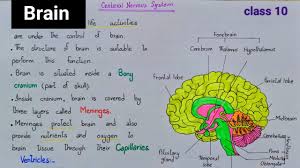 Brain
class 10
Central Nervous System
life activities
are under the control of brain
The structure of brain is suitable to
perform this function.
Brain is situated inside a Bony
cranium (part of skull).
Inside cranium, brain is covered by
three layers called Meninges.
Meninges protect brain and also
provide nutrients and oxygen to
brain tissue through their Capillaries.
Ventricles:-
Forebrain
Cerebrum Thalamus Hypothalamus
Frontal lobe
Parietal lobe
Occipital lobe
Pituitary gland
Temporal lobe
Midbrain
Cerebellum
Pons
Medulla